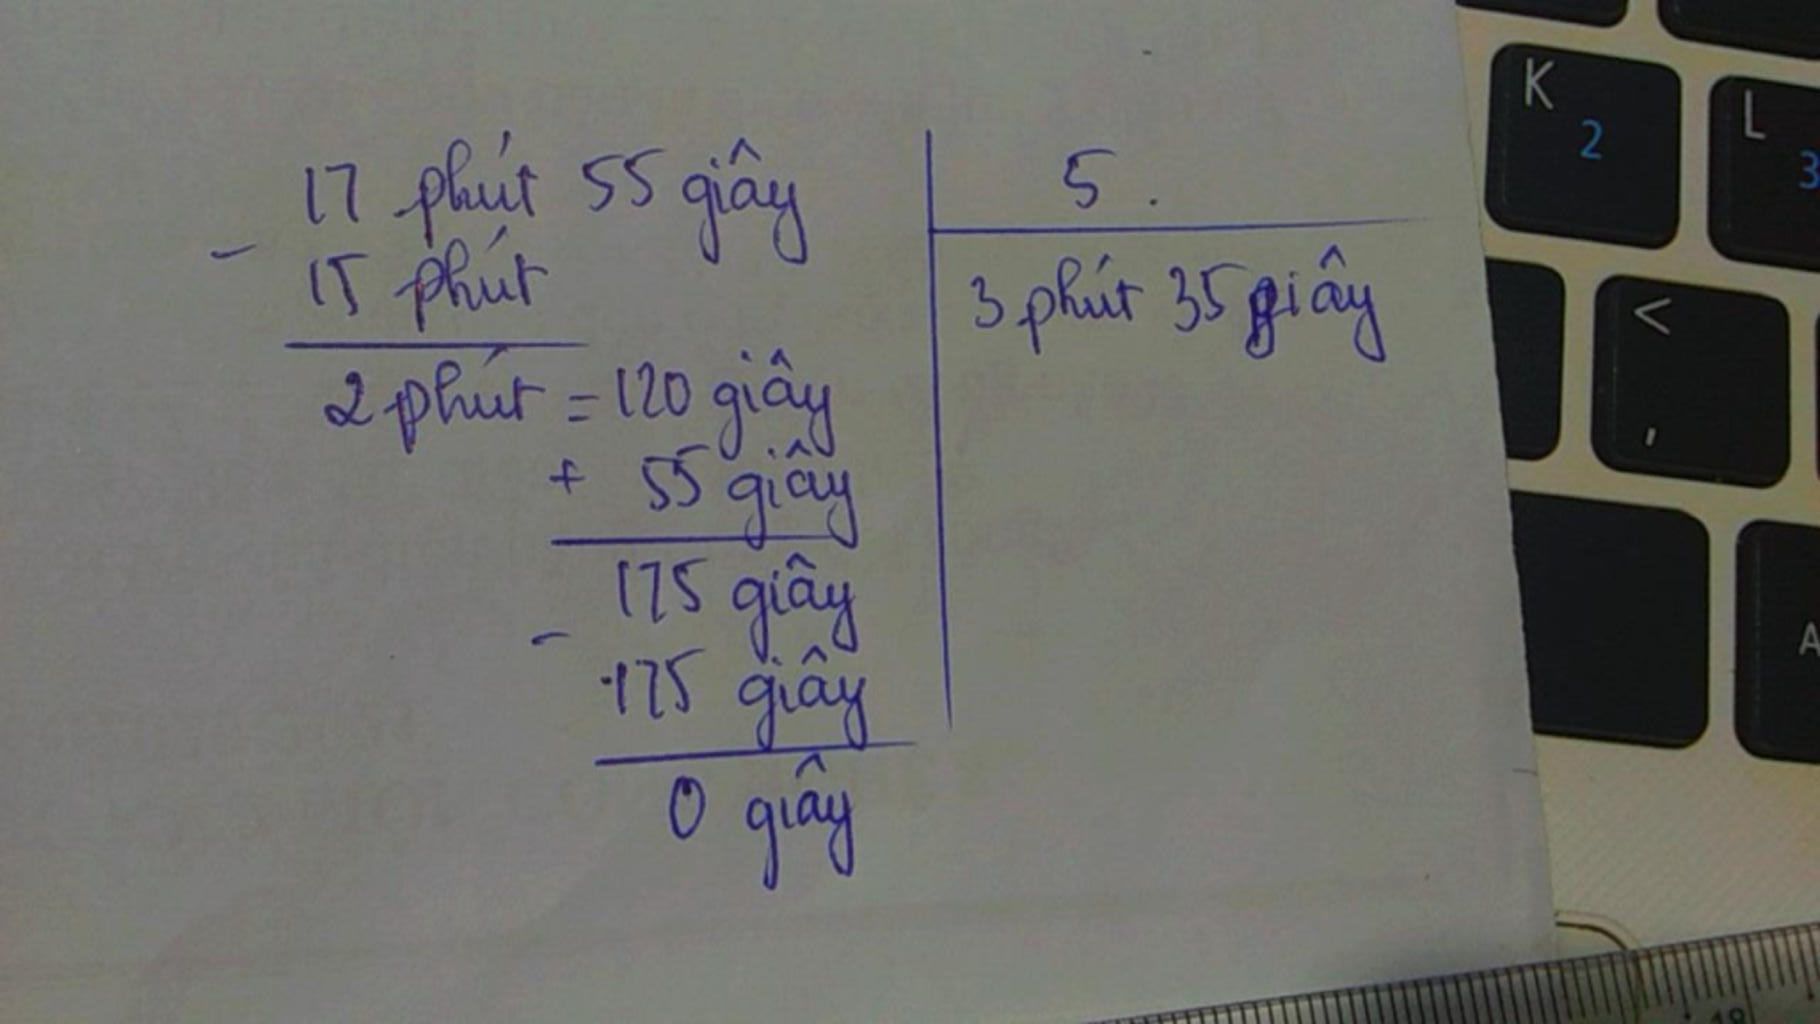 17 phút 55 giây
5.
- 15 phút
3 phút 35 giây
2 phút = 120 giây
+ 55 giây
175 giây
- 175 giây
0 giây
K
2
L
3
<
,
A
18